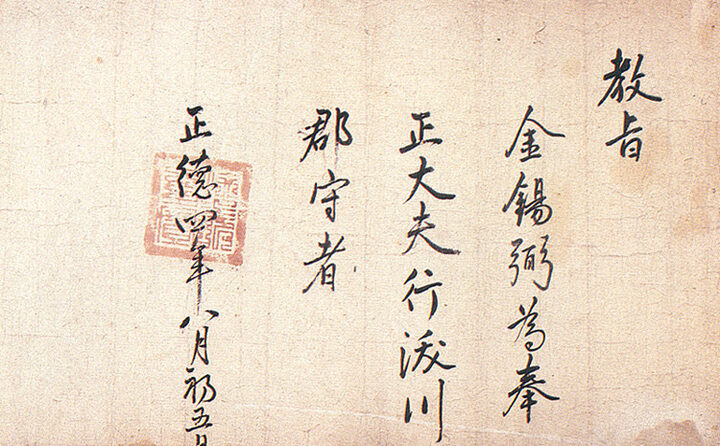 教旨
金錫弼為奉
正大夫行川
郡守者
正德四年八月初五日